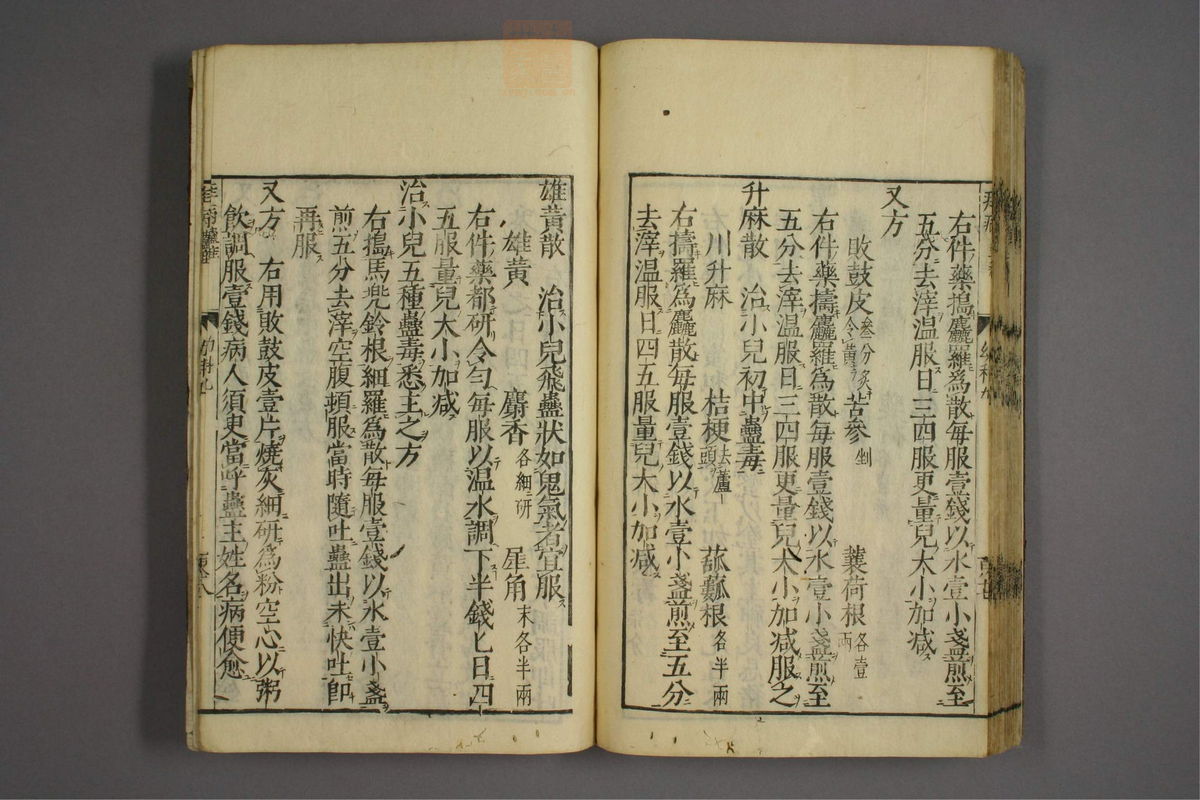 右件藥搗麤羅爲散每服壹錢以水壹小盞煎至
五分去滓温服日三四服更量兒大小加减
又方
敗鼓皮叄分炙令黄 苦參剉 蘘荷根各壹兩
右件藥擣麤羅爲散每服壹錢以水壹小盞煎至
五分去滓温服日三四服更量兒大小加减服之
升麻散 治小兒初中蠱毒
川升麻 桔梗去蘆頭 苽蔞根各半兩
右擣羅爲麤散每服壹錢以水壹小盞煎至五分
去滓温服日四五服量兒大小加减
雄黄散 治小兒飛蠱狀如鬼氣者宜服
雄黄 麝香各細研 犀角末各半兩
右件藥都研令匀每服以温水調下半錢匕日四
五服量兒大小加减
治小兒五種蠱毒悉主之方
右搗馬兠鈴根細羅爲散每服壹錢以水壹小盞
煎五分去滓空腹頓服當時隨吐蠱出未快吐卽
再服
又方 右用敗鼓皮壹片燒灰細研爲粉空心以粥
飲調服壹錢病人須臾當呼蠱主姓名病便愈